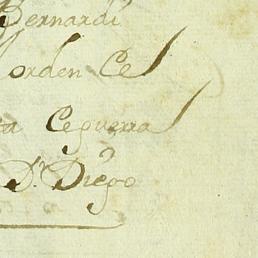 Bernardi
orden Cel
Ceguerra
Dⁿ. Diego